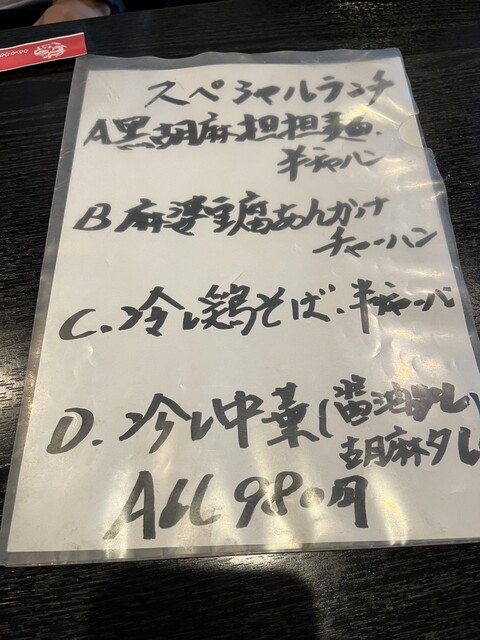 スペシャルランチ
A黒胡麻担担麺.
半チャーハン
B麻婆豆腐あんかけ
チャーハン
C.冷し鶏そば.半チャーハン
D.冷し中華(醤油ダレ)
胡麻タレ
All 980円